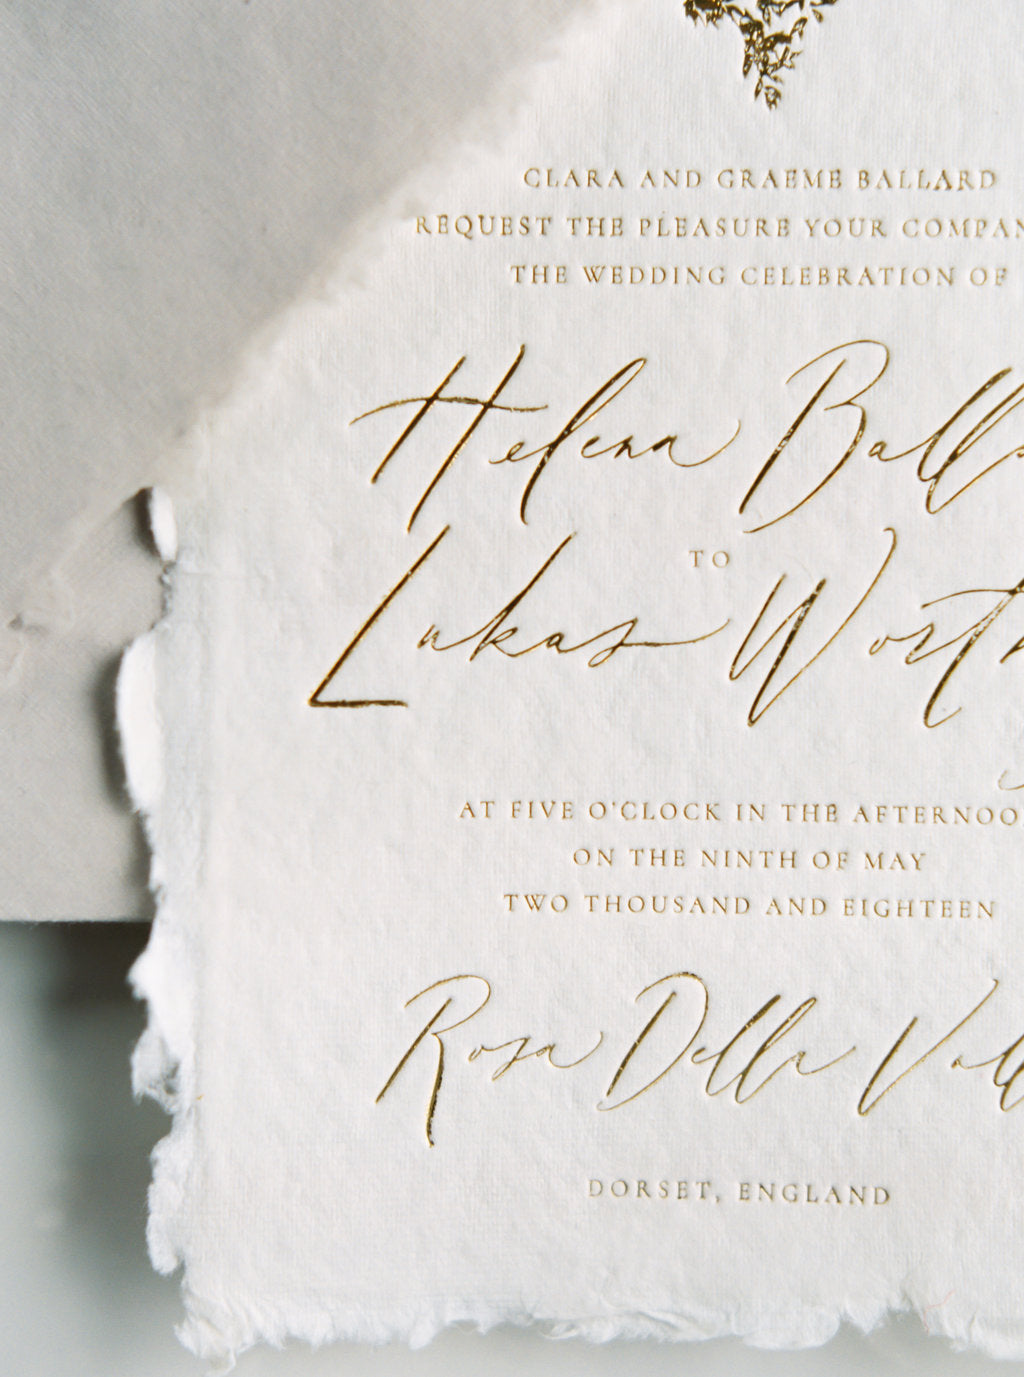 CLARA AND GRAEME BALLARD
REQUEST THE PLEASURE YOUR COMPAN
THE WEDDING CELEBRATION OF
Helena Ball
TO
Lukas Worth
AT FIVE O'CLOCK IN THE AFTERNOO
ON THE NINTH OF MAY
TWO THOUSAND AND EIGHTEEN
Rosa Della Vall
DORSET, ENGLAND